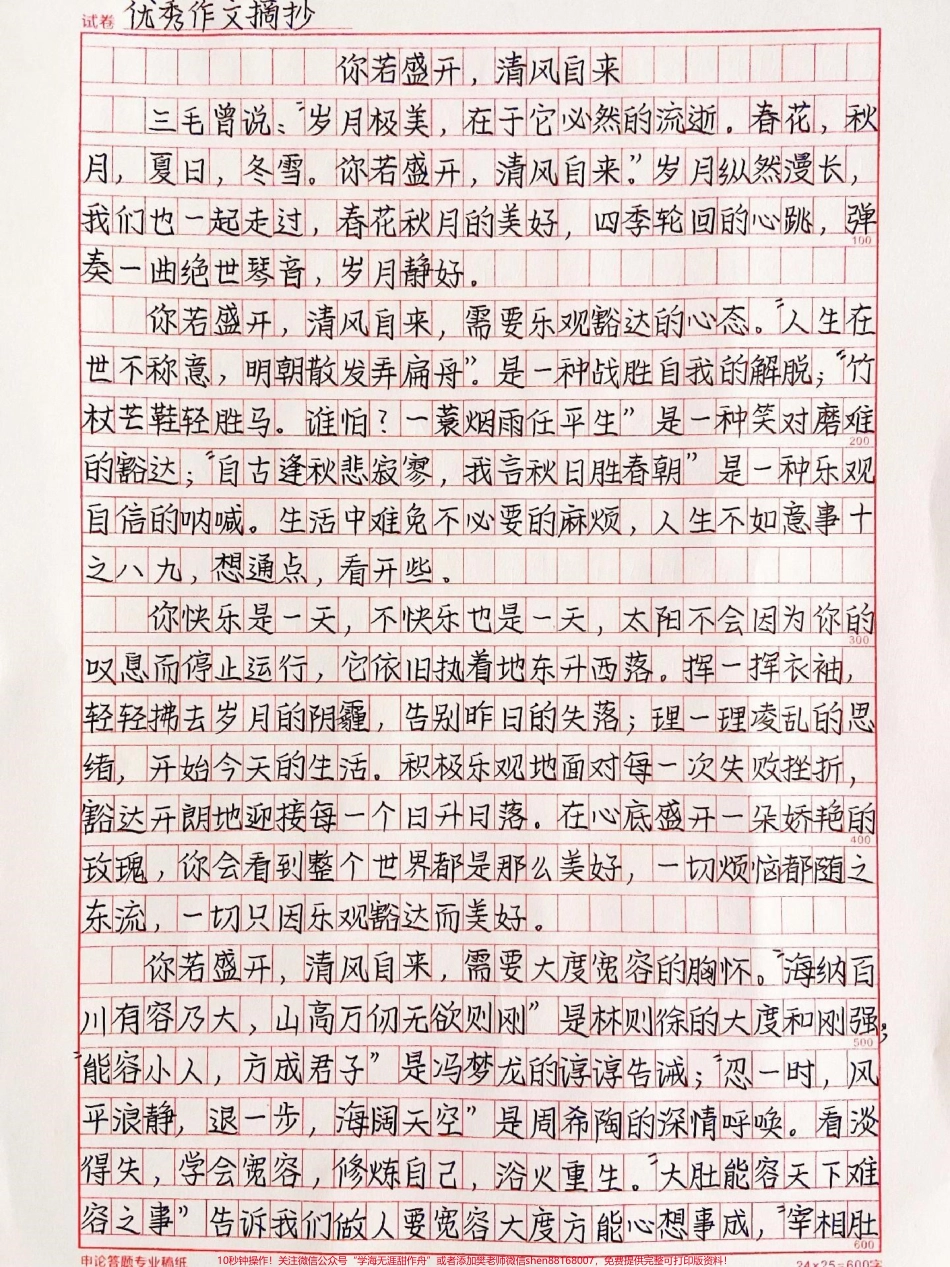 试卷 优秀作文摘抄
你若盛开，清风自来
三毛曾说：“岁月极美，在于它必然的流逝。春花，秋
月，夏日，冬雪。你若盛开，清风自来”。岁月纵然漫长，
我们也一起走过，春花秋月的美好，四季轮回的心跳，弹
100
奏一曲绝世琴音，岁月静好。
你若盛开，清风自来，需要乐观豁达的心态。“人生在
世不称意，明朝散发弄扁舟”。是一种战胜自我的解脱；“竹
杖芒鞋轻胜马。谁怕？一蓑烟雨任平生”是一种笑对磨难
200
的豁达；“自古逢秋悲寂寥，我言秋日胜春朝”是一种乐观
自信的呐喊。生活中难免不必要的麻烦，人生不如意事十
之八九，想通点，看开些。
你快乐是一天，不快乐也是一天，太阳不会因为你的
300
叹息而停止运行，它依旧执着地东升西落。挥一挥衣袖，
轻轻拂去岁月的阴霾，告别昨日的失落；理一理凌乱的思
绪，开始今天的生活。积极乐观地面对每一次失败挫折，
豁达开朗地迎接每一个日升日落。在心底盛开一朵娇艳的
400
玫瑰，你会看到整个世界都是那么美好，一切烦恼都随之
东流，一切只因乐观豁达而美好。
你若盛开，清风自来，需要大度宽容的胸怀。“海纳百
川有容乃大，山高万仞无欲则刚”是林则徐的大度和刚强；
500
“能容小人，方成君子”是冯梦龙的谆谆告诫；“忍一时，风
平浪静，退一步，海阔天空”是周希陶的深情呼唤。看淡
得失，学会宽容，修炼自己，浴火重生。“大肚能容天下难
容之事”告诉我们做人要宽容大度方能心想事成，“宰相肚
600
申论答题专业稿纸 10秒钟操作！关注微信公众号“学海无涯甜作舟”或者添加樊老师微信shen88168007，免费提供完整可打印版资料！ 24×25=600字